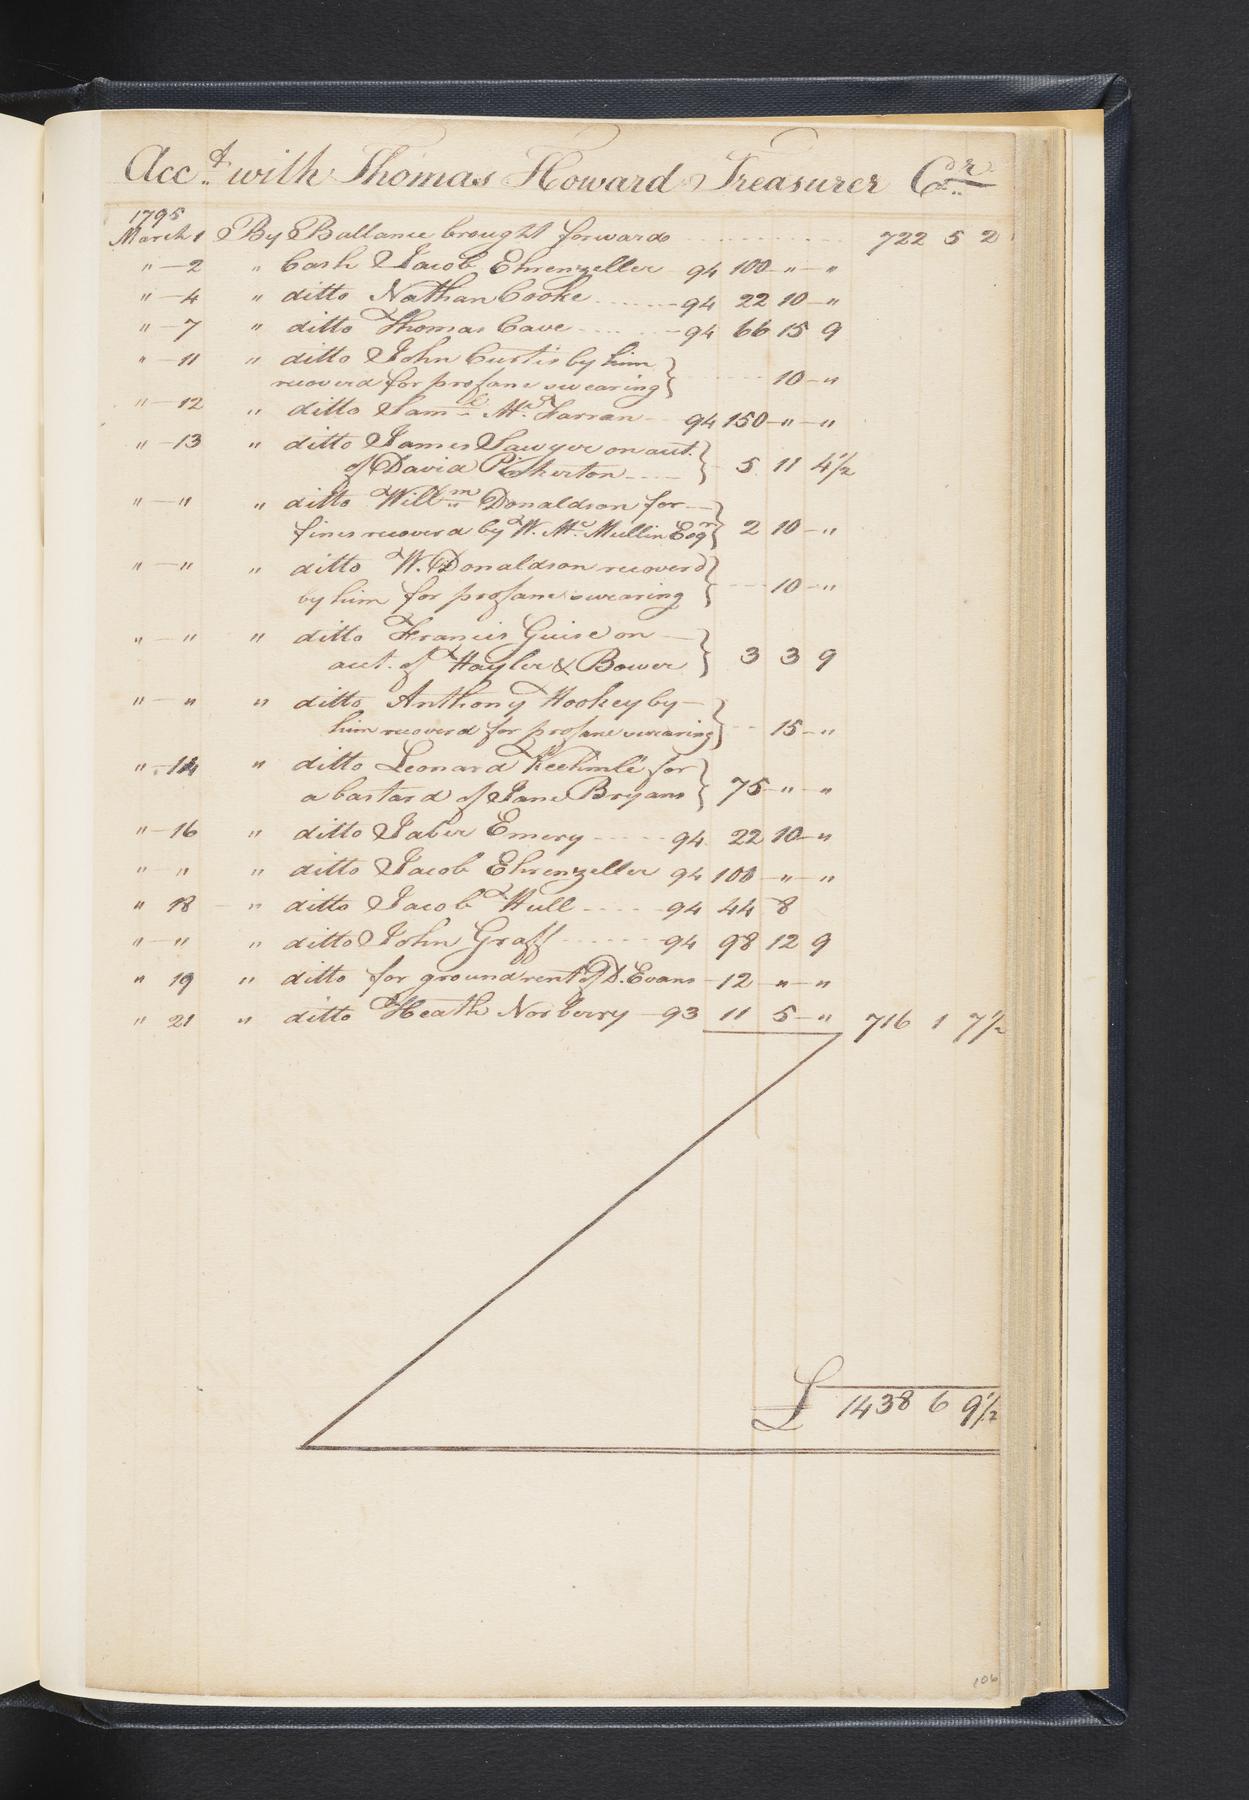 Acc.t with Thomas Howard Treasurer Cr.
1795
March 1 By Ballance brought forward 722 5 2
" — 2 " Cash Jacob Ehrenzeller 94 100 — " — "
" — 4 " ditto Nathan Cooke 94 22 10 — "
" — 7 " ditto Thomas Cave 94 66 15 9
" — 11 " ditto John Curtis by him
recoverd for profane swearing } 10 — "
" — 12 " ditto Saml. Mc. Farran 94 150 — " — "
" — 13 " ditto James Sawyer on acct.
of David Pinkerton } 5 11 4 1/2
" — " " ditto Willm. Donaldson for
fines recoverd by W. Mc. Mullin Esqr } 2 10 — "
" — " " ditto W. Donaldson recoverd
by him for profane swearing } 10 — "
" — " " ditto Francis Guise on
acct. of Hayler & Bower } 3 3 9
" — " " ditto Anthony Hookey by
him recoverd for profane swearing } 15 — "
" — 14 " ditto Leonard Keehmle for
a bastard of Jane Bryans } 75 — " — "
" — 16 " ditto Jaber Emery 94 22 10 — "
" — " " ditto Jacob Ehrenzeller 94 100 — " — "
" 18 — " ditto Jacob Hull 94 44 8
" — " " ditto John Graff 94 98 12 9
" 19 " ditto for ground rent of D. Evans 12 — " — "
" 21 " ditto Heath Norberry 93 11 5 — " 716 1 7 1/2
£ 1438 6 9 1/2
106